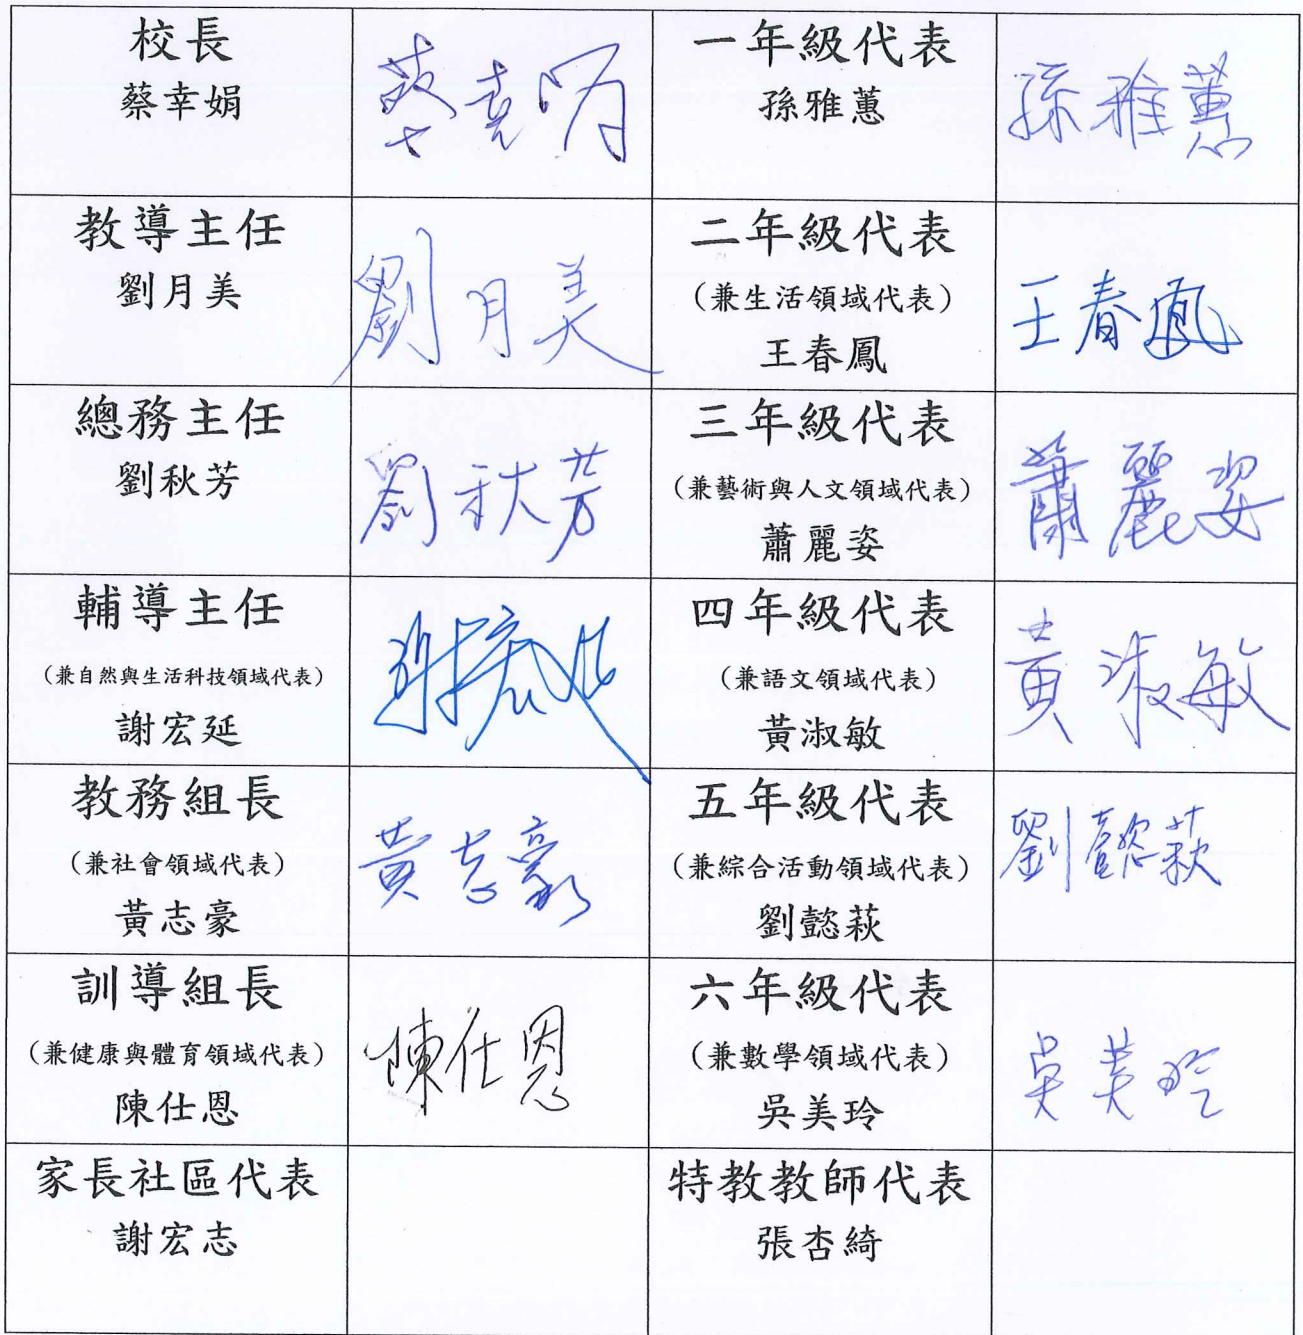 校長
蔡幸娟
蔡幸娟
一年級代表
孫雅蕙
孫雅蕙
教導主任
劉月美
劉月美
二年級代表
（兼生活領域代表）
王春鳳
王春鳳
總務主任
劉秋芳
劉秋芳
三年級代表
（兼藝術與人文領域代表）
蕭麗姿
蕭麗姿
輔導主任
（兼自然與生活科技領域代表）
謝宏延
謝宏延
四年級代表
（兼語文領域代表）
黃淑敏
黃淑敏
教務組長
（兼社會領域代表）
黃志豪
黃志豪
五年級代表
（兼綜合活動領域代表）
劉懿萩
劉懿萩
訓導組長
（兼健康與體育領域代表）
陳仕恩
陳仕恩
六年級代表
（兼數學領域代表）
吳美玲
吳美玲
家長社區代表
謝宏志
特教教師代表
張杏綺